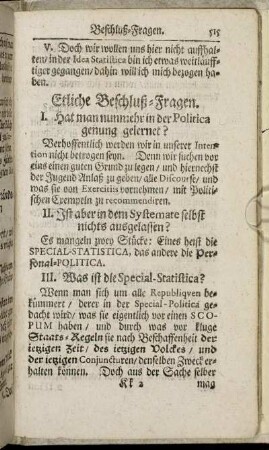 Beschluß-Fragen. 515
V. Doch wir wollen uns hier nicht auffhal-
ten/ in der Idea Statistica bin ich etwas weitläuff-
tiger gegangen/ dahin will ich mich bezogen ha-
ben.
Etliche Beschluß-Fragen.
I. Hat man nunmehr in der Politica
genung gelernet?
Verhoffentlich werden wir in unserer Inten-
tion nicht betrogen seyn. Denn wir suchen vor
eins einen guten Grund zu legen/ und hiernechst
der Jugend Anlaß zu geben/ alle Discourse/ und
was sie von Exercitiis vornehmen/ mit Politi-
schen Exempeln zu recommendiren.
II. Ist aber in dem Systemate selbst
nichts ausgelassen?
Es mangeln zwey Stücke: Eines heist die
SPECIAL-STATISTICA, das andere die Per-
sonal-POLITICA.
III. Was ist die Special-Statistica?
Wenn man sich um alle Republiqven be-
kümmert/ derer in der Special-Politica ge-
dacht wird/ was sie eigentlich vor einen SCO-
PUM haben/ und durch was vor kluge
Staats-Regeln sie nach Beschaffenheit der
ietzigen Zeit/ des ietzigen Volckes/ und
der ietzigen Conjuncturen/ denselben Zweck er-
halten können. Doch aus der Sache selber
Kk 2 mag